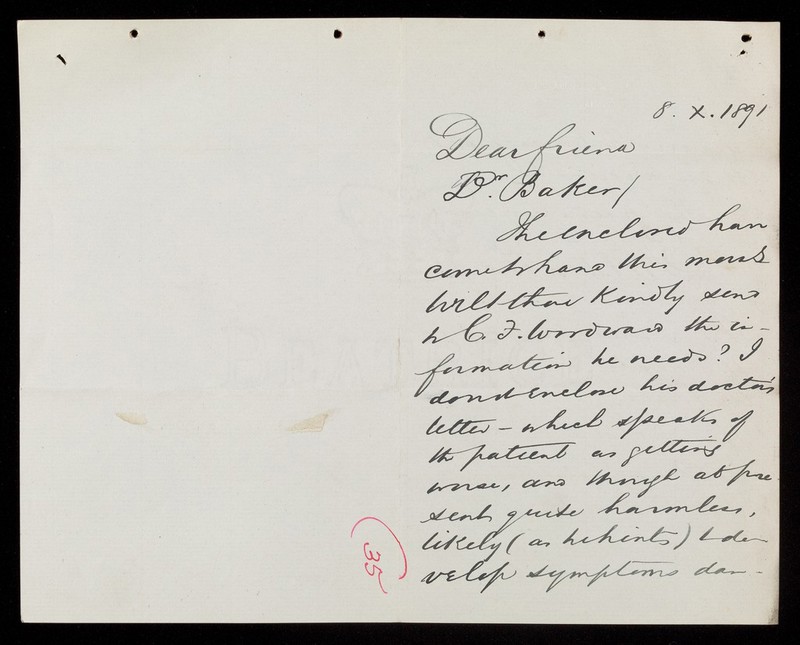 8. X. 1891
Dear friend
Dr. Baker/
The enclosed have
come to hand this morng
Wilt thou kindly send
to C. F. Woodward the in-
formation he needs? I
do not enclose his doctor's
letter - which speaks of
the patient as getting
worse, and though at pre-
sent quite harmless,
likely (as he hints) to de-
velop symptoms dan-
(35